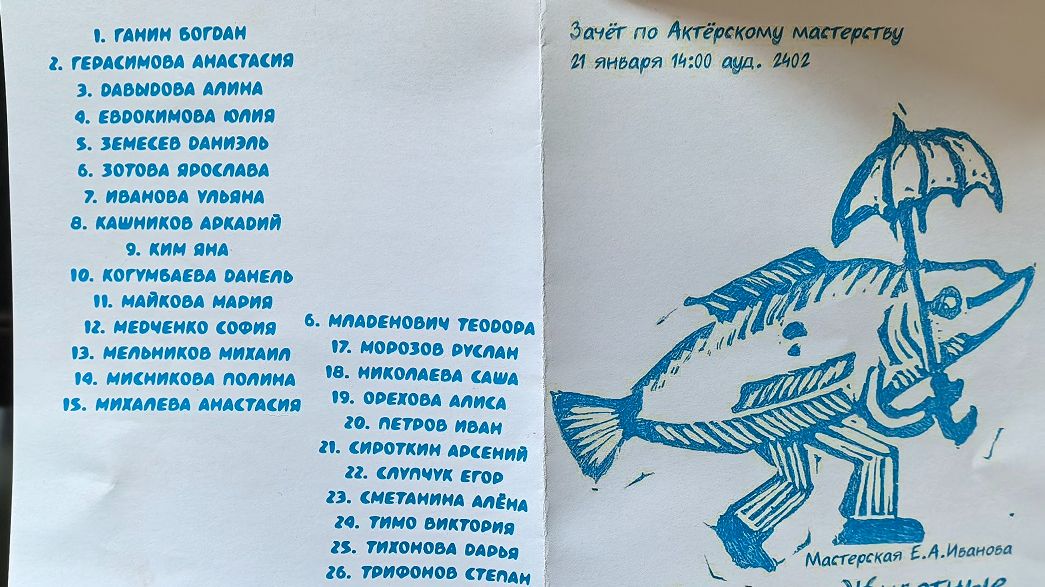 1. ГАНИН БОГДАН
2. ГЕРАСИМОВА АНАСТАСИЯ
3. DАВЫDОВА АЛИНА
4. ЕВDОКИМОВА ЮЛИЯ
5. ЗЕМЕСЕВ DАНИЭЛЬ
6. ЗОТОВА ЯРОСЛАВА
7. ИВАНОВА УЛЬЯНА
8. КАШНИКОВ АРКАDИЙ
9. КИМ ЯНА
10. КОГУМБАЕВА DАНЕЛЬ
11. МАЙКОВА МАРИЯ
12. МЕDЧЕНКО СОФИЯ
13. МЕЛЬНИКОВ МИХАИЛ
14. МИСНИКОВА ПОЛИНА
15. МИХАЛЕВА АНАСТАСИЯ
6. МЛАDЕНОВИЧ ТЕОDОРА
17. МОРОЗОВ РУСЛАН
18. НИКОЛАЕВА САША
19. ОРЕХОВА АЛИСА
20. ПЕТРОВ ИВАН
21. СИРОТКИН АРСЕНИЙ
22. СЛУПЧУК ЕГОР
23. СМЕТАНИНА АЛЁНА
24. ТИМО ВИКТОРИЯ
25. ТИХОНОВА DАРЬЯ
26. ТРИФОНОВ СТЕПАН
Зачёт по Актёрскому мастерству
21 января 14:00 ауд. 2402
Мастерская Е.А.Иванова